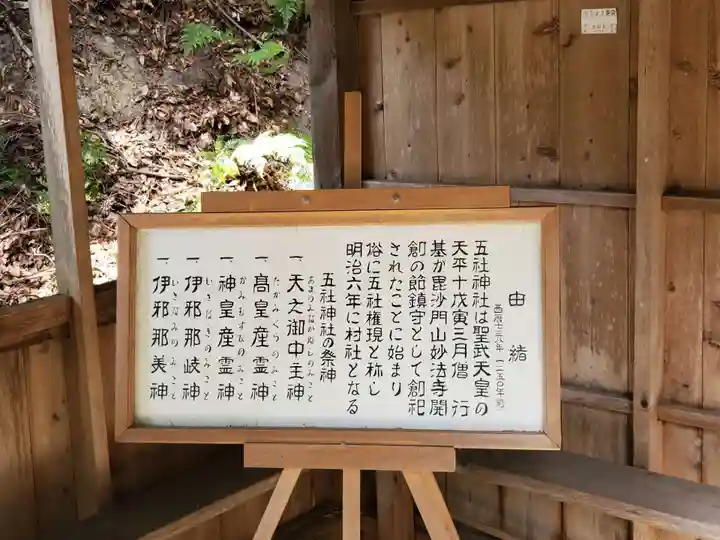 由緒
五社神社は聖武天皇の
西歴七三八年(一二五〇年前)
天平十戊寅三月僧 行
基が毘沙門山妙法寺開
創の節鎮守として創祀
されたことに始まり
俗に五社権現と称し
明治六年に村社となる
五社神社の祭神
一、天之御中主神
あめのみなかぬしのみこと
一、高皇産霊神
一、神皇産霊神
かみむすびのみこと
一、伊邪那岐神
いさなぎのみこと
一、伊邪那美神
いさなみのみこと